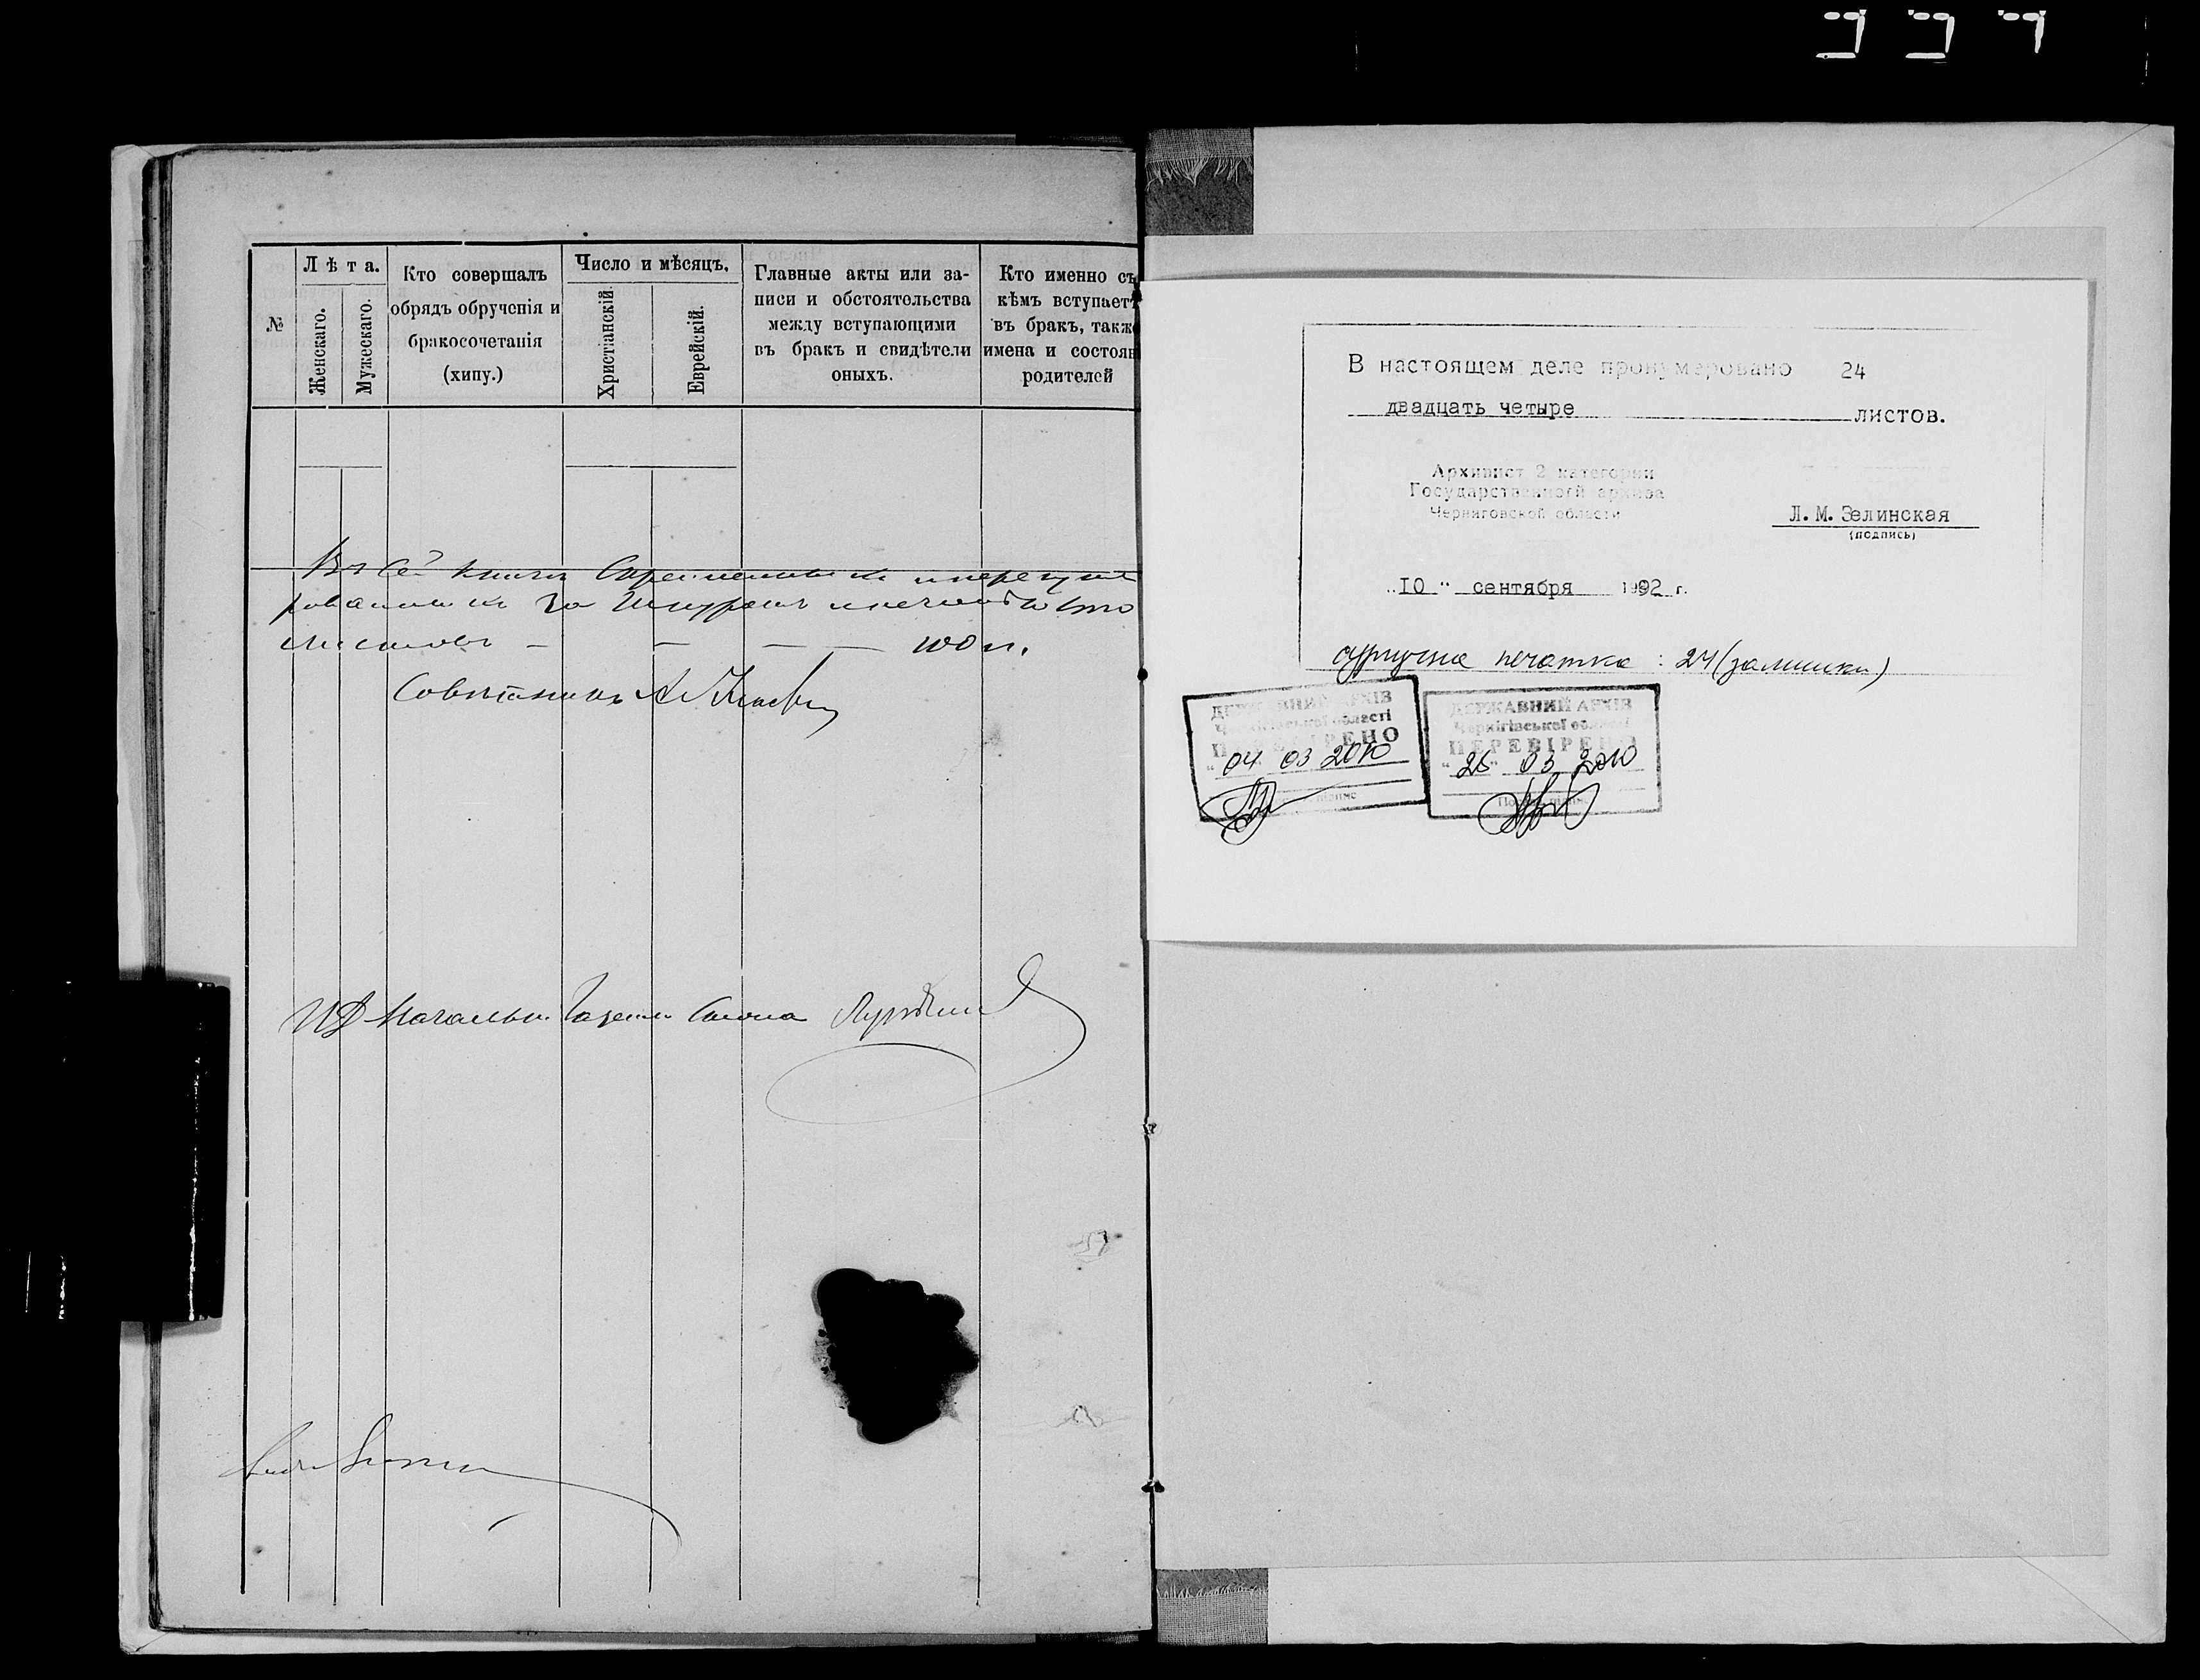 №
Лѣта.
Женскаго.
Мужескаго.
Кто совершалъ
обрядъ обрученія и
бракосочетанія
(хипу.)
Число и мѣсяцъ.
Христіанскій.
Еврейскій.
Главные акты или за-
писи и обстоятельства
между вступающими
въ бракъ и свидѣтели
оныхъ.
Кто именно съ
кѣмъ вступаетъ
въ бракъ, также
имена и состоян
родителей
Въ сей книги
за Шнуромъ и печатью сто
листовъ — — — — 100 л.
Совѣтникъ
ИД Начальн. Газетн. Стола
В настоящем деле пронумеровано 24
двадцать четыре листов.
Архивист 2 категории
Государственной архива
Черниговской области
Л.М.Зелинская
(подпись)
"10" сентября 1992 г.
сургучна печатка : 24 (залишки)
ДЕРЖАВНИЙ АРХІВ
Чернігівської області
ПЕРЕВІРЕНО
"04" 03 2010
ДЕРЖАВНИЙ АРХІВ
Чернігівської області
ПЕРЕВІРЕНО
"26" 03 2010